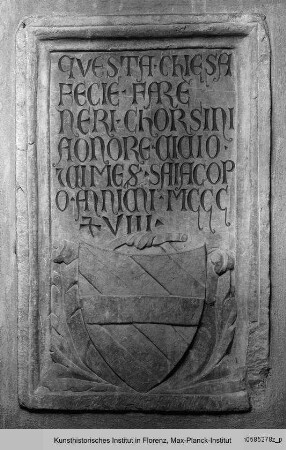 QVESTA·CHIESA
FECIE·FARE
NERI·CHORSINI
AONORE·DIDIO
SAIACOP
O·ANNIMI·MCCC
VIII
Kunsthistorisches Institut in Florenz, Max-Planck-Institut